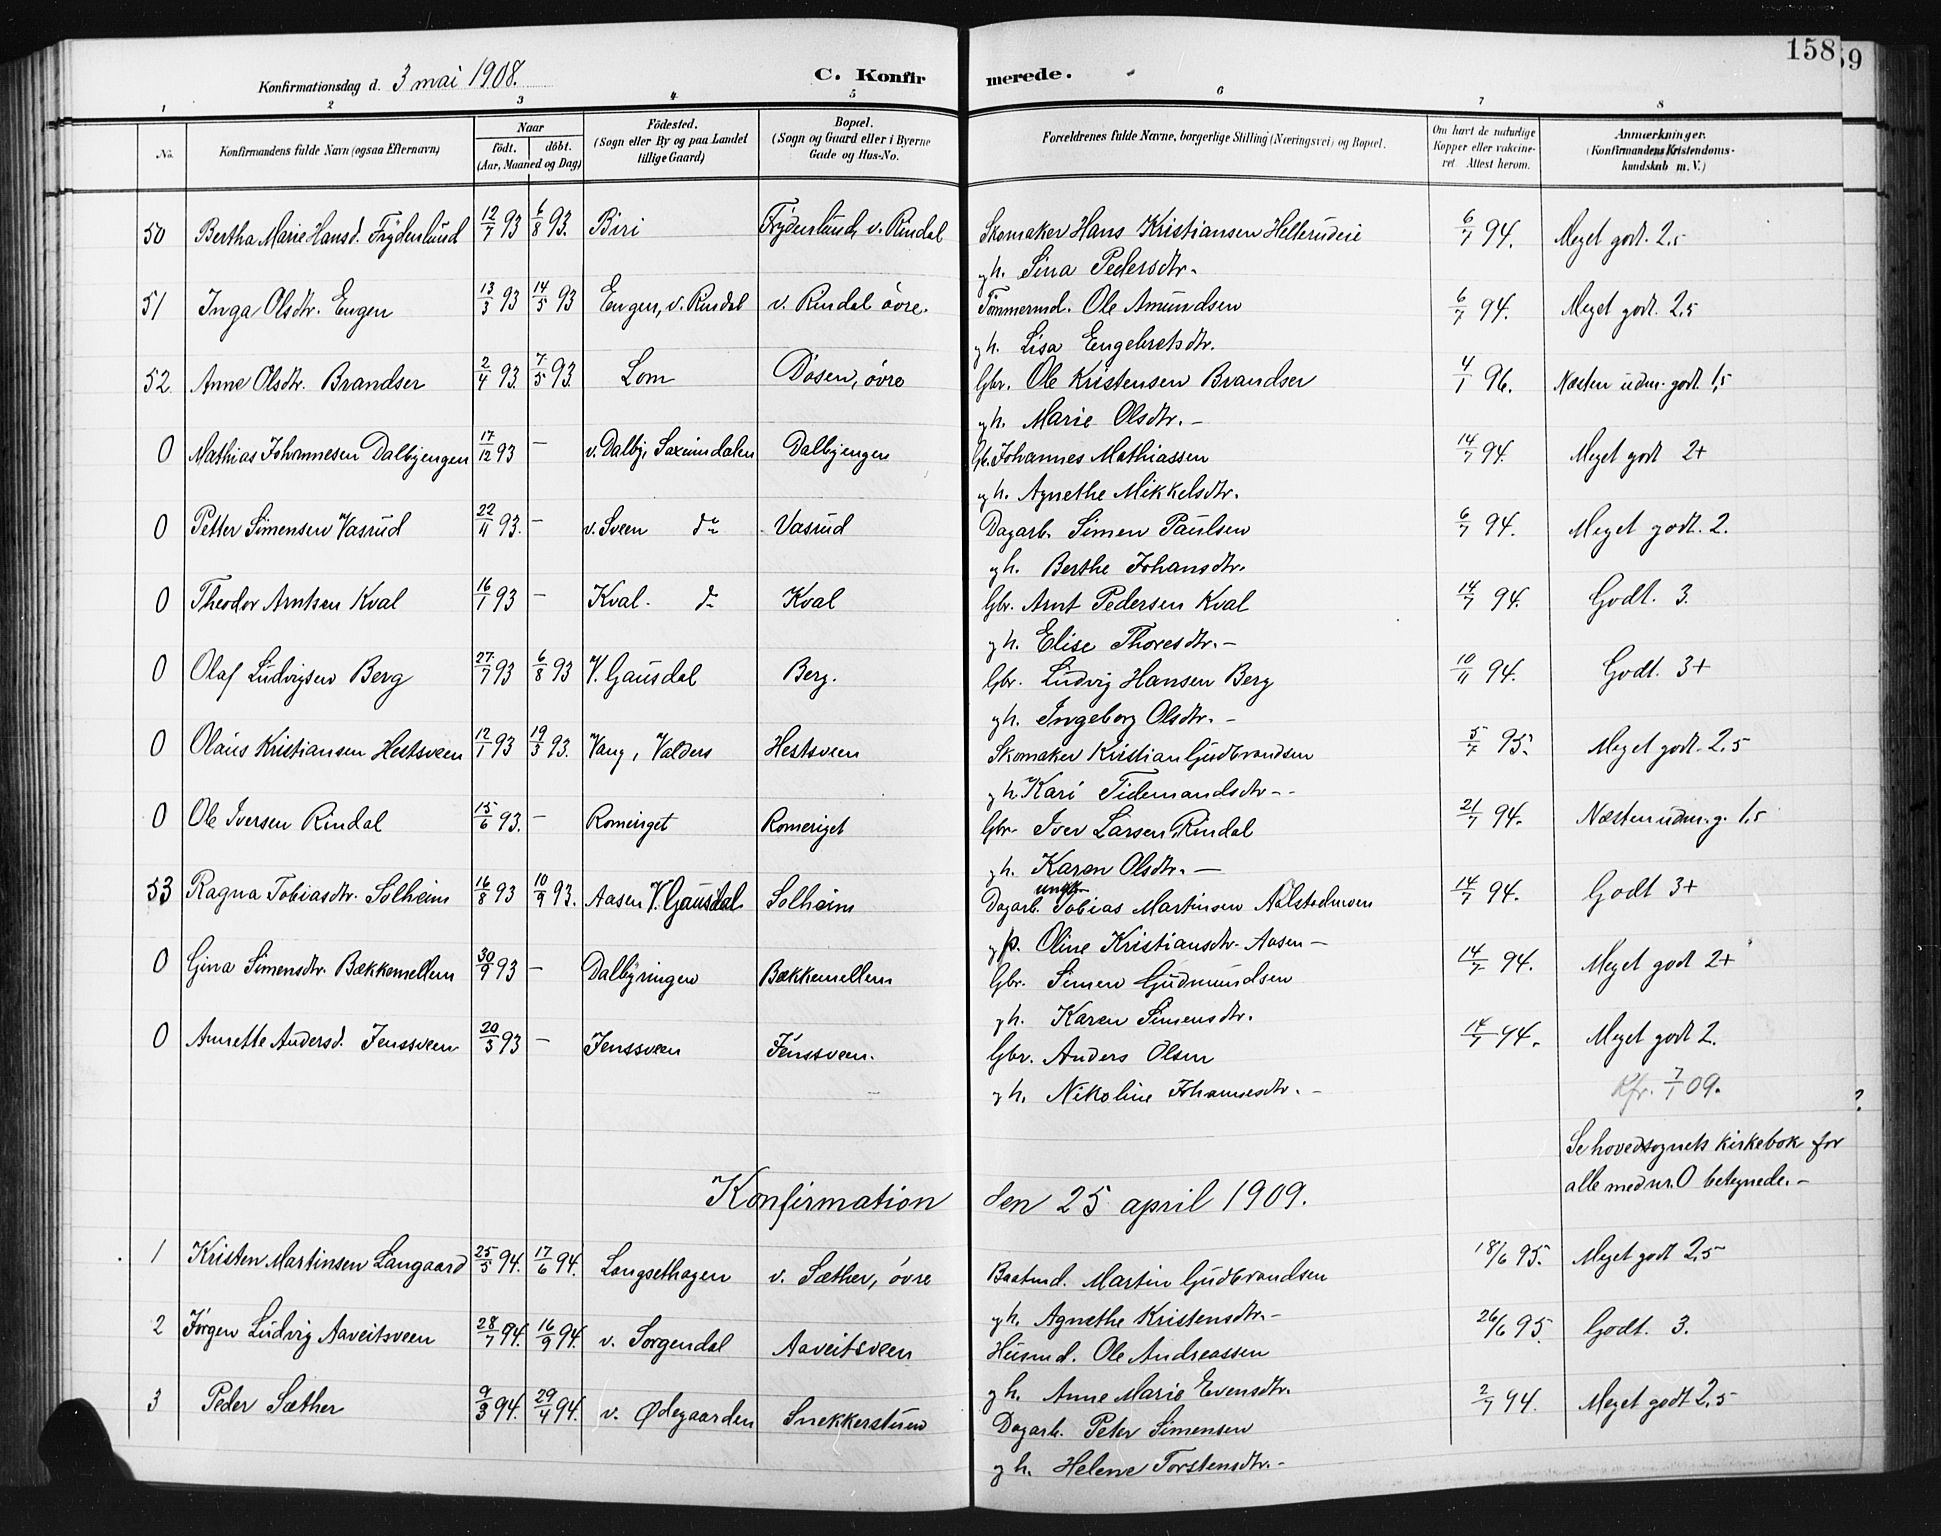 158
9
Konfirmationsdag d. 3 mai 1908. C. Konfirmerede.
1 2 3 4 5 6 7 8
No. Konfirmandens fulde Navn (ogsaa Efternavn) Naar født. døbt. (Aar, Maaned og Dag) Fødested. (Sogn eller By og paa Landet tillige Gaard) Bopæl. (Sogn og Gaard eller i Byerne Gade og Hus-No. Forældrenes fulde Navne, borgerlige Stilling (Næringsvei) og Bopæl. Om havt de naturlige Kopper eller vakcineret. Attest herom. Anmærkninger. (Konfirmandens Kristendomskundskab m. V.)
50 Bertha Marie Hansd. Frydenlund 12/7 93 6/8 93. Biri Frydenlund, v. Rindal Skomaker Hans Kristiansen Helterudeie 6/7 94. Meget godt. 2,5
gh. Sina Pedersdtr.
51 Inga Olsdtr. Engen 13/3 93 14/5 93 Engen, v. Rindal v. Rindal øvre. Tømmermd. Ole Amundsen 6/7 94. Meget godt. 2,5
gh. Lisa Engebretsdtr.
52. Anne Olsdtr. Brandser 2/4 93. 7/5 93. Lom Døsen, øvre Gbr. Ole Kristensen Brandser 4/1 96. Næsten udm. godt. 1,5
gh. Marie Olsdtr. -
0 Mathias Johannesen Dalbyengen 17/12 93 - v. Dalby, Saxumdalen Dalbyengen Gb. Johannes Mathiassen 14/7 94. Meget godt 2+
gh. Agnethe Mikkelsdtr.
0 Petter Simensen Vasrud 22/11 93. - v. Sveen do Vasrud Dagarb. Simen Paulsen 6/7 94. Meget godt. 2.
gh. Berthe Johansdtr.
0 Theodor Arntsen Kval 16/1 93 - Kval. do Kval Gbr. Arnt Pedersen Kval 14/7 94. Godt. 3.
gh. Elise Thoresdtr. -
0 Olaf Ludvigsen Berg 27/7 93 6/8 93 V. Gausdal Berg. Gbr. Ludvig Hansen Berg 10/11 94. Godt. 3+
gh. Ingeborg Olsdtr. -
0 Olaus Kristiansen Hestsveen 12/1 93 19/3 93. Vang, Valders Hestsveen Skomaker Kristian Gudbrandsen 5/7 95. Meget godt. 2,5
gh Kari Tidemandsdtr -
0 Ole Iversen Rindal 15/6 93. - Romeriget Romeriget Gbr. Iver Larsen Rindal 21/7 94. Næsten udm. g. 1,5
gh. Karen Olsdtr. -
53 Ragna Tobiasdtr. Solheim 16/8 93 10/9 93. Aasen V. Gausdal Solheim Dagarb. ungk. Tobias Martinsen Aalstadmoen 14/7 94. Godt 3+
gp. Oline Kristiansdtr. Aasen -
0 Gina Simensdtr. Bækkemellem 30/9 93 - Dalbyringen Bækkemellem Gbr. Simen Gudmundsen 14/7 94. Meget godt 2+
gh. Karen Simensdtr.
0 Annette Andersd. Jenssveen 20/3 93 - Jenssveen Jenssveen. Gbr. Anders Olsen 14/7 94. Meget godt 2.
gh. Nikoline Johannesdtr. - Kfr. 7/1 09.
Se hovedsognets kirkebok for
alle med nr. 0 betegnede. -
Konfirmation den 25 april 1909.
1 Kristen Martinsen Langaard 25/5 94. 17/6 94. Langsethagen v. Sæther, øvre Baatmd. Martin Gudbrandsen 18/6 95. Meget godt 2,5
gh. Agnethe Kristensdtr. -
2 Jørgen Ludvig Aaveitsveen 28/7 94. 16/9 94. v. Sorgendal Aaveitsveen Husmd. Ole Andreassen 26/6 95. Godt. 3.
gh. Anne Marie Evensdtr.
3 Peder Sæther 9/3 94. 29/4 94. v. Ødegaarden Snekkerstuen Dagarb. Peter Simensen 2/7 94. Meget godt 2,5
gh. Helene Torstensdtr. -